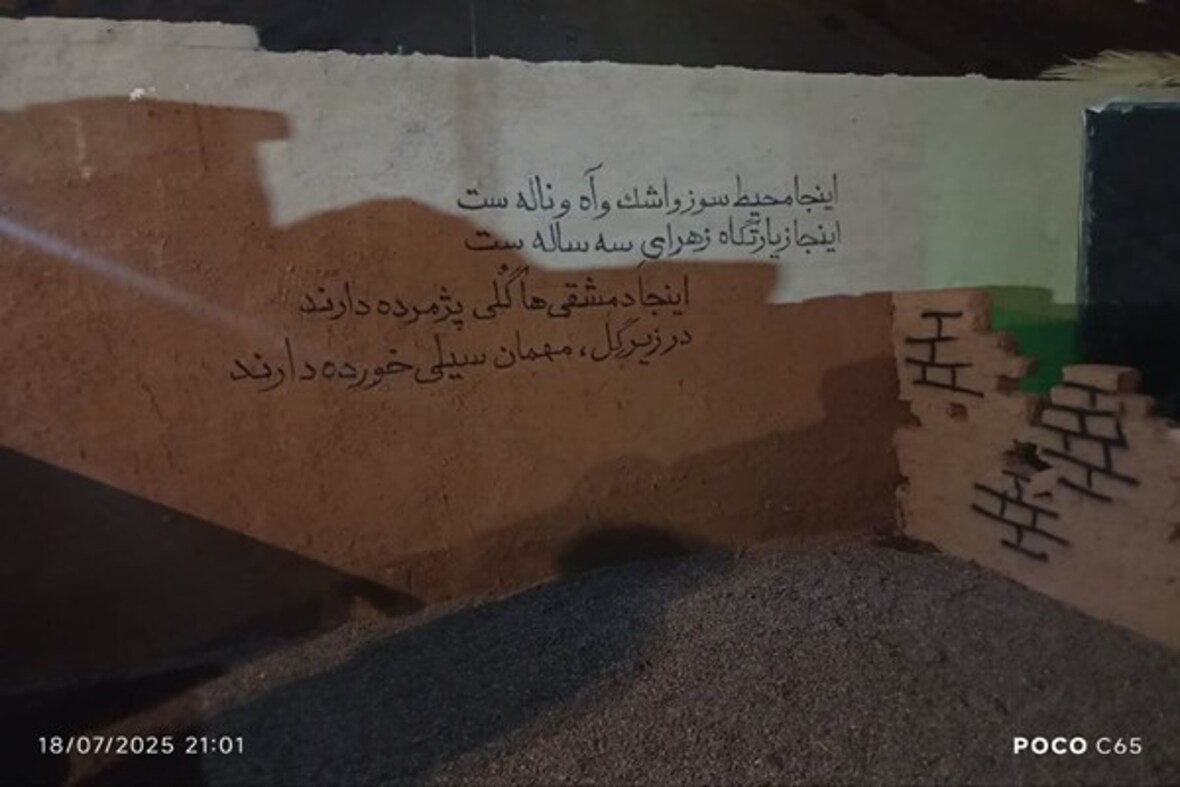 اینجا محیط سوز و اشک و آه و ناله ست
اینجا زیارتگاه زهرای سه ساله ست
اینجا دمشقی ها گُلی پژمرده دارند
در زیر گِل، مهمان سیلی خورده دارند
18/07/2025 21:01
POCO C65